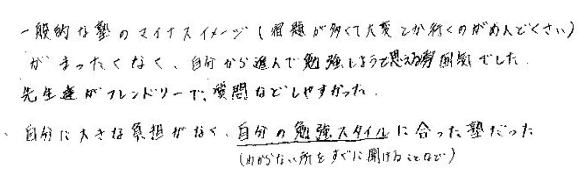 一般的な塾のマイナスイメージ(宿題が多くて大変とか行くのがめんどくさい)
がまったくなく、自分から進んで勉強しようと思える雰囲気でした。
先生達がフレンドリーで、質問などしやすかった。
・自分に大きな負担がなく、自分の勉強スタイルに合った塾だった
(わからない所をすぐに聞けることなど)